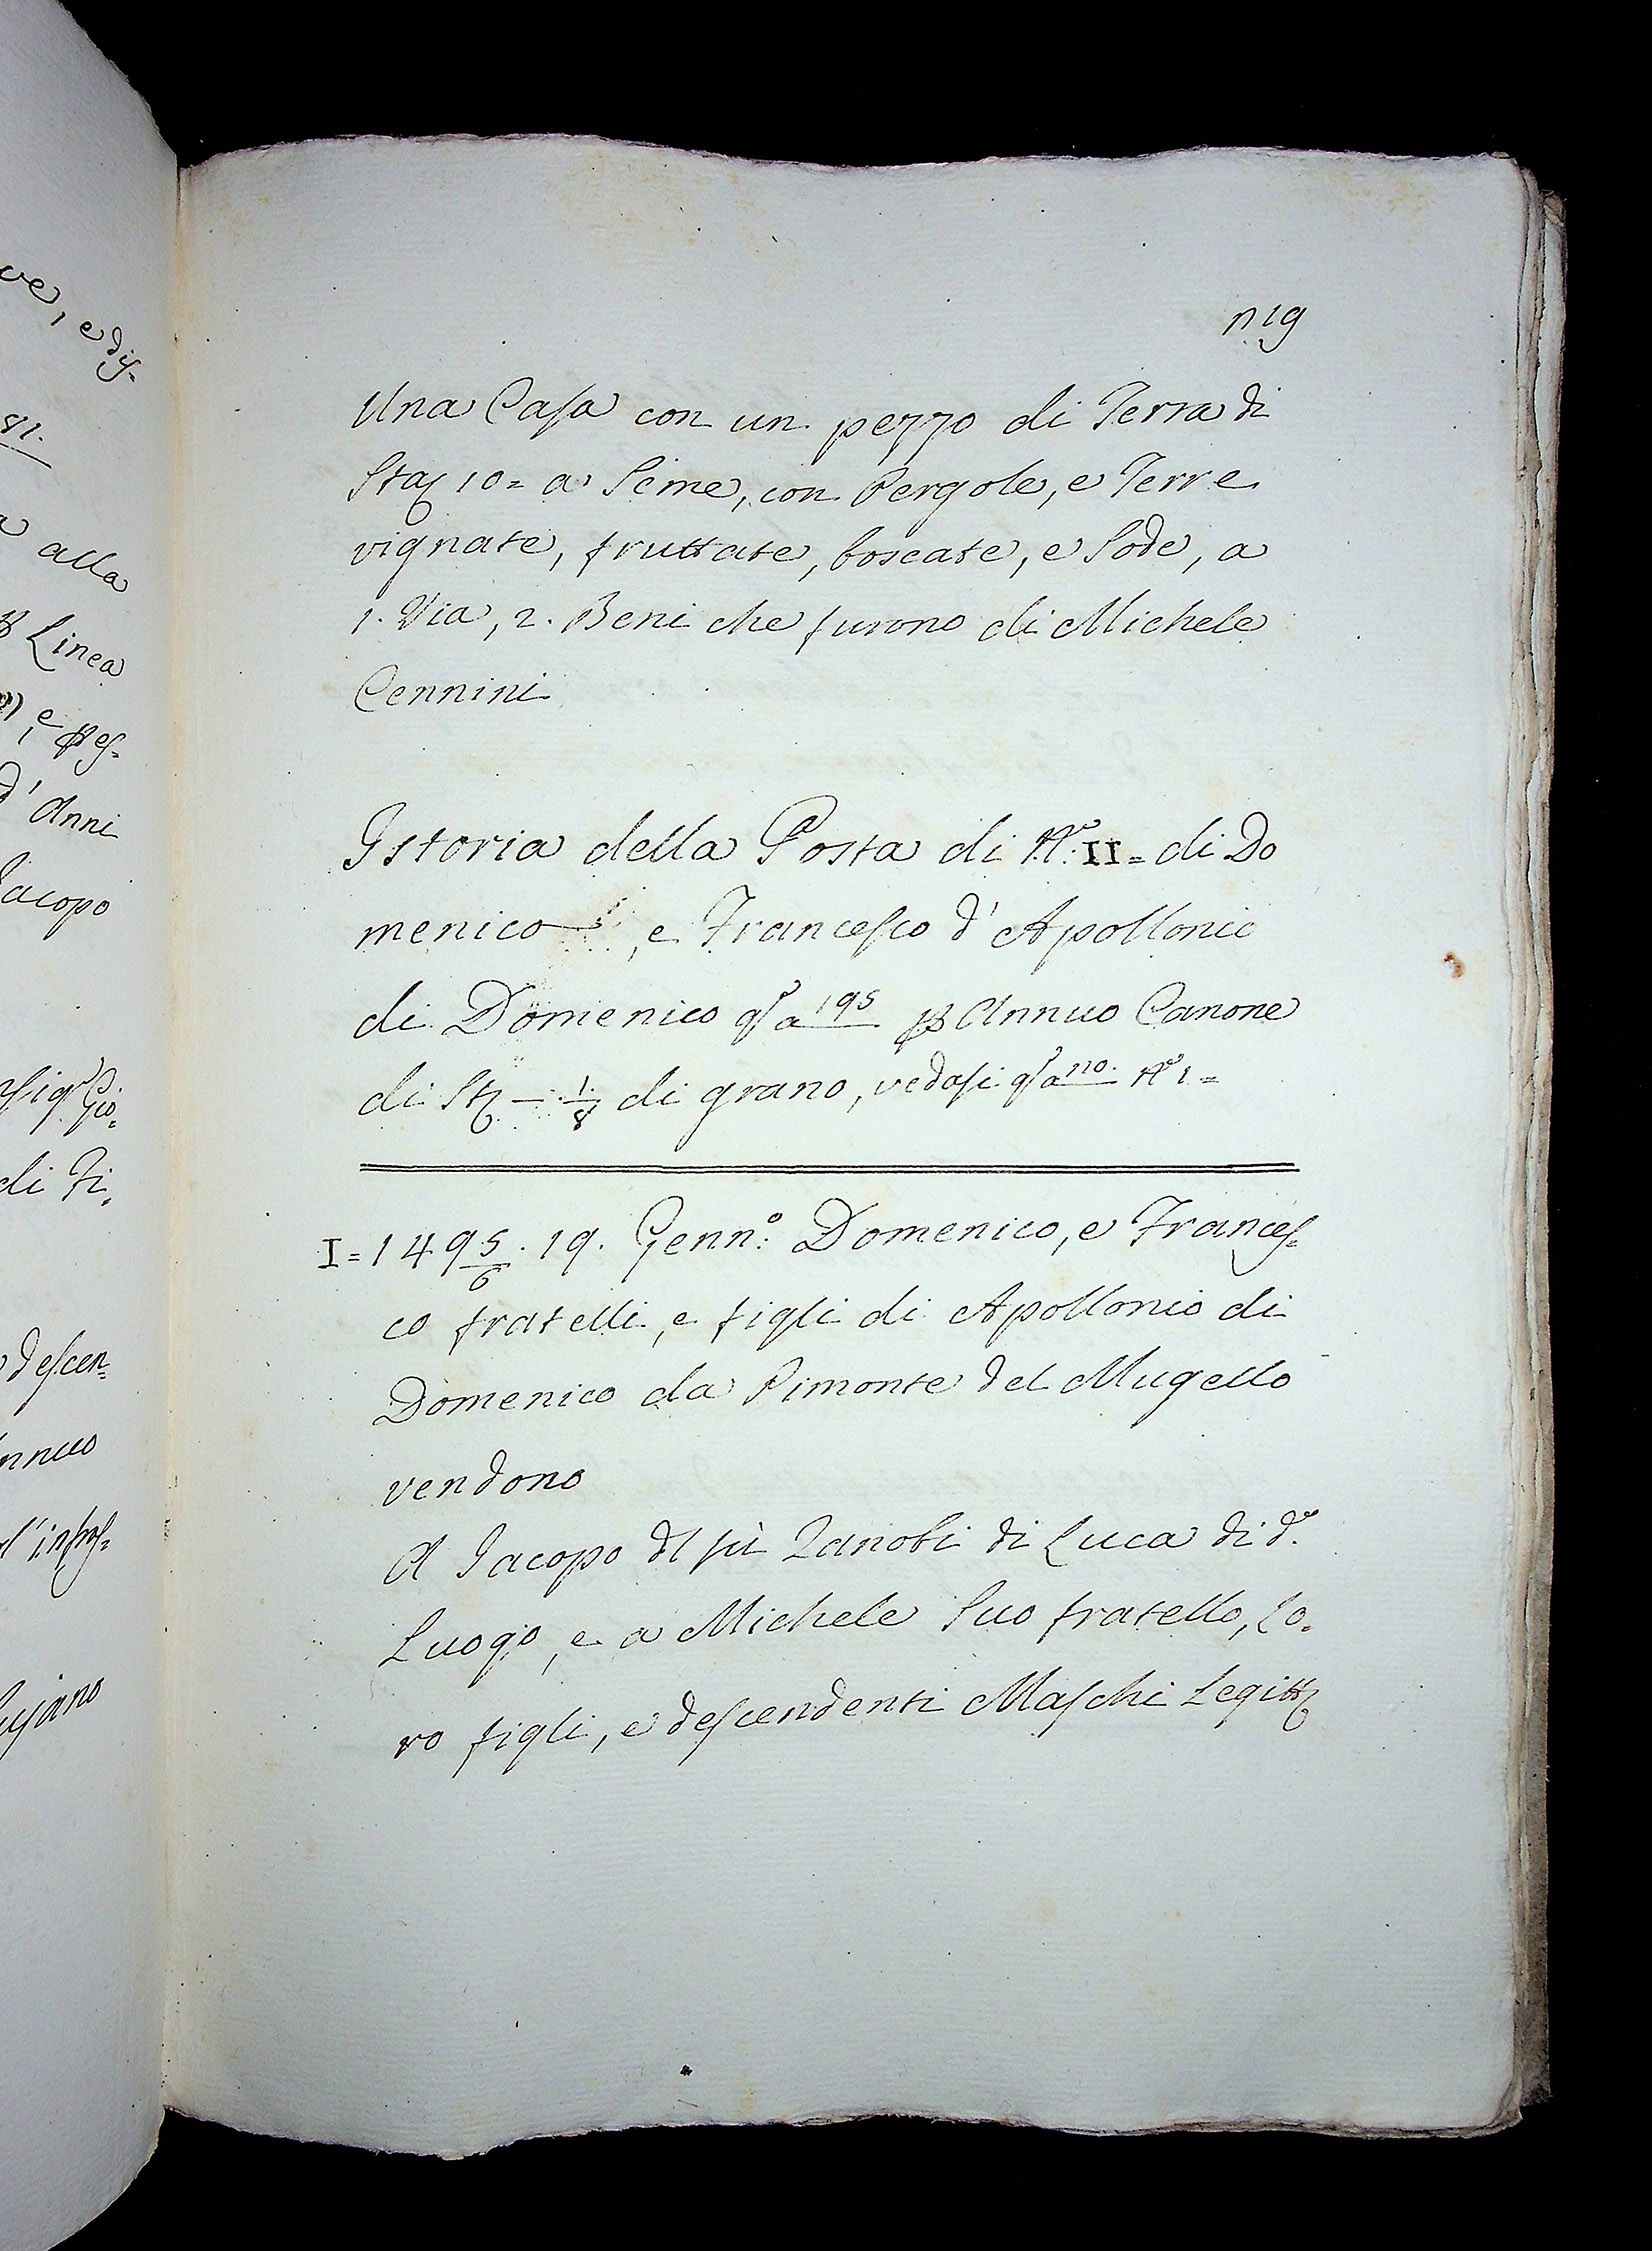 ve, e dis-
81.
a alla
Linea
e pres-
d'Anni
Jacopo
di Fi,
descen=
nnuo
n 19
Una Casa con un pezzo di Terra di
Sta 10= a Seme, con Pergole, e Terre
vignate, fruttate, boscate, e Sode, a
1. Via, 2. Beni che furono di Michele
Cennini
Istoria della Posta di N.º II= di Do
menico, e Francesco d'Apollonio
di Domenico 195 Annuo Canone
di St. - 1/8 di grano, vedasi no. Nº 1=
I= 1495/6. 19. Genn:º Domenico, e Frances-
co fratelli, e figli di Apollonio di
Domenico da Pimonte del Mugello
vendono
A Jacopo dl fù Zanobi di Luca di d.º
Luogo, e a Michele Suo fratello, Lo,
ro figli, e descendenti Maschi Legitt